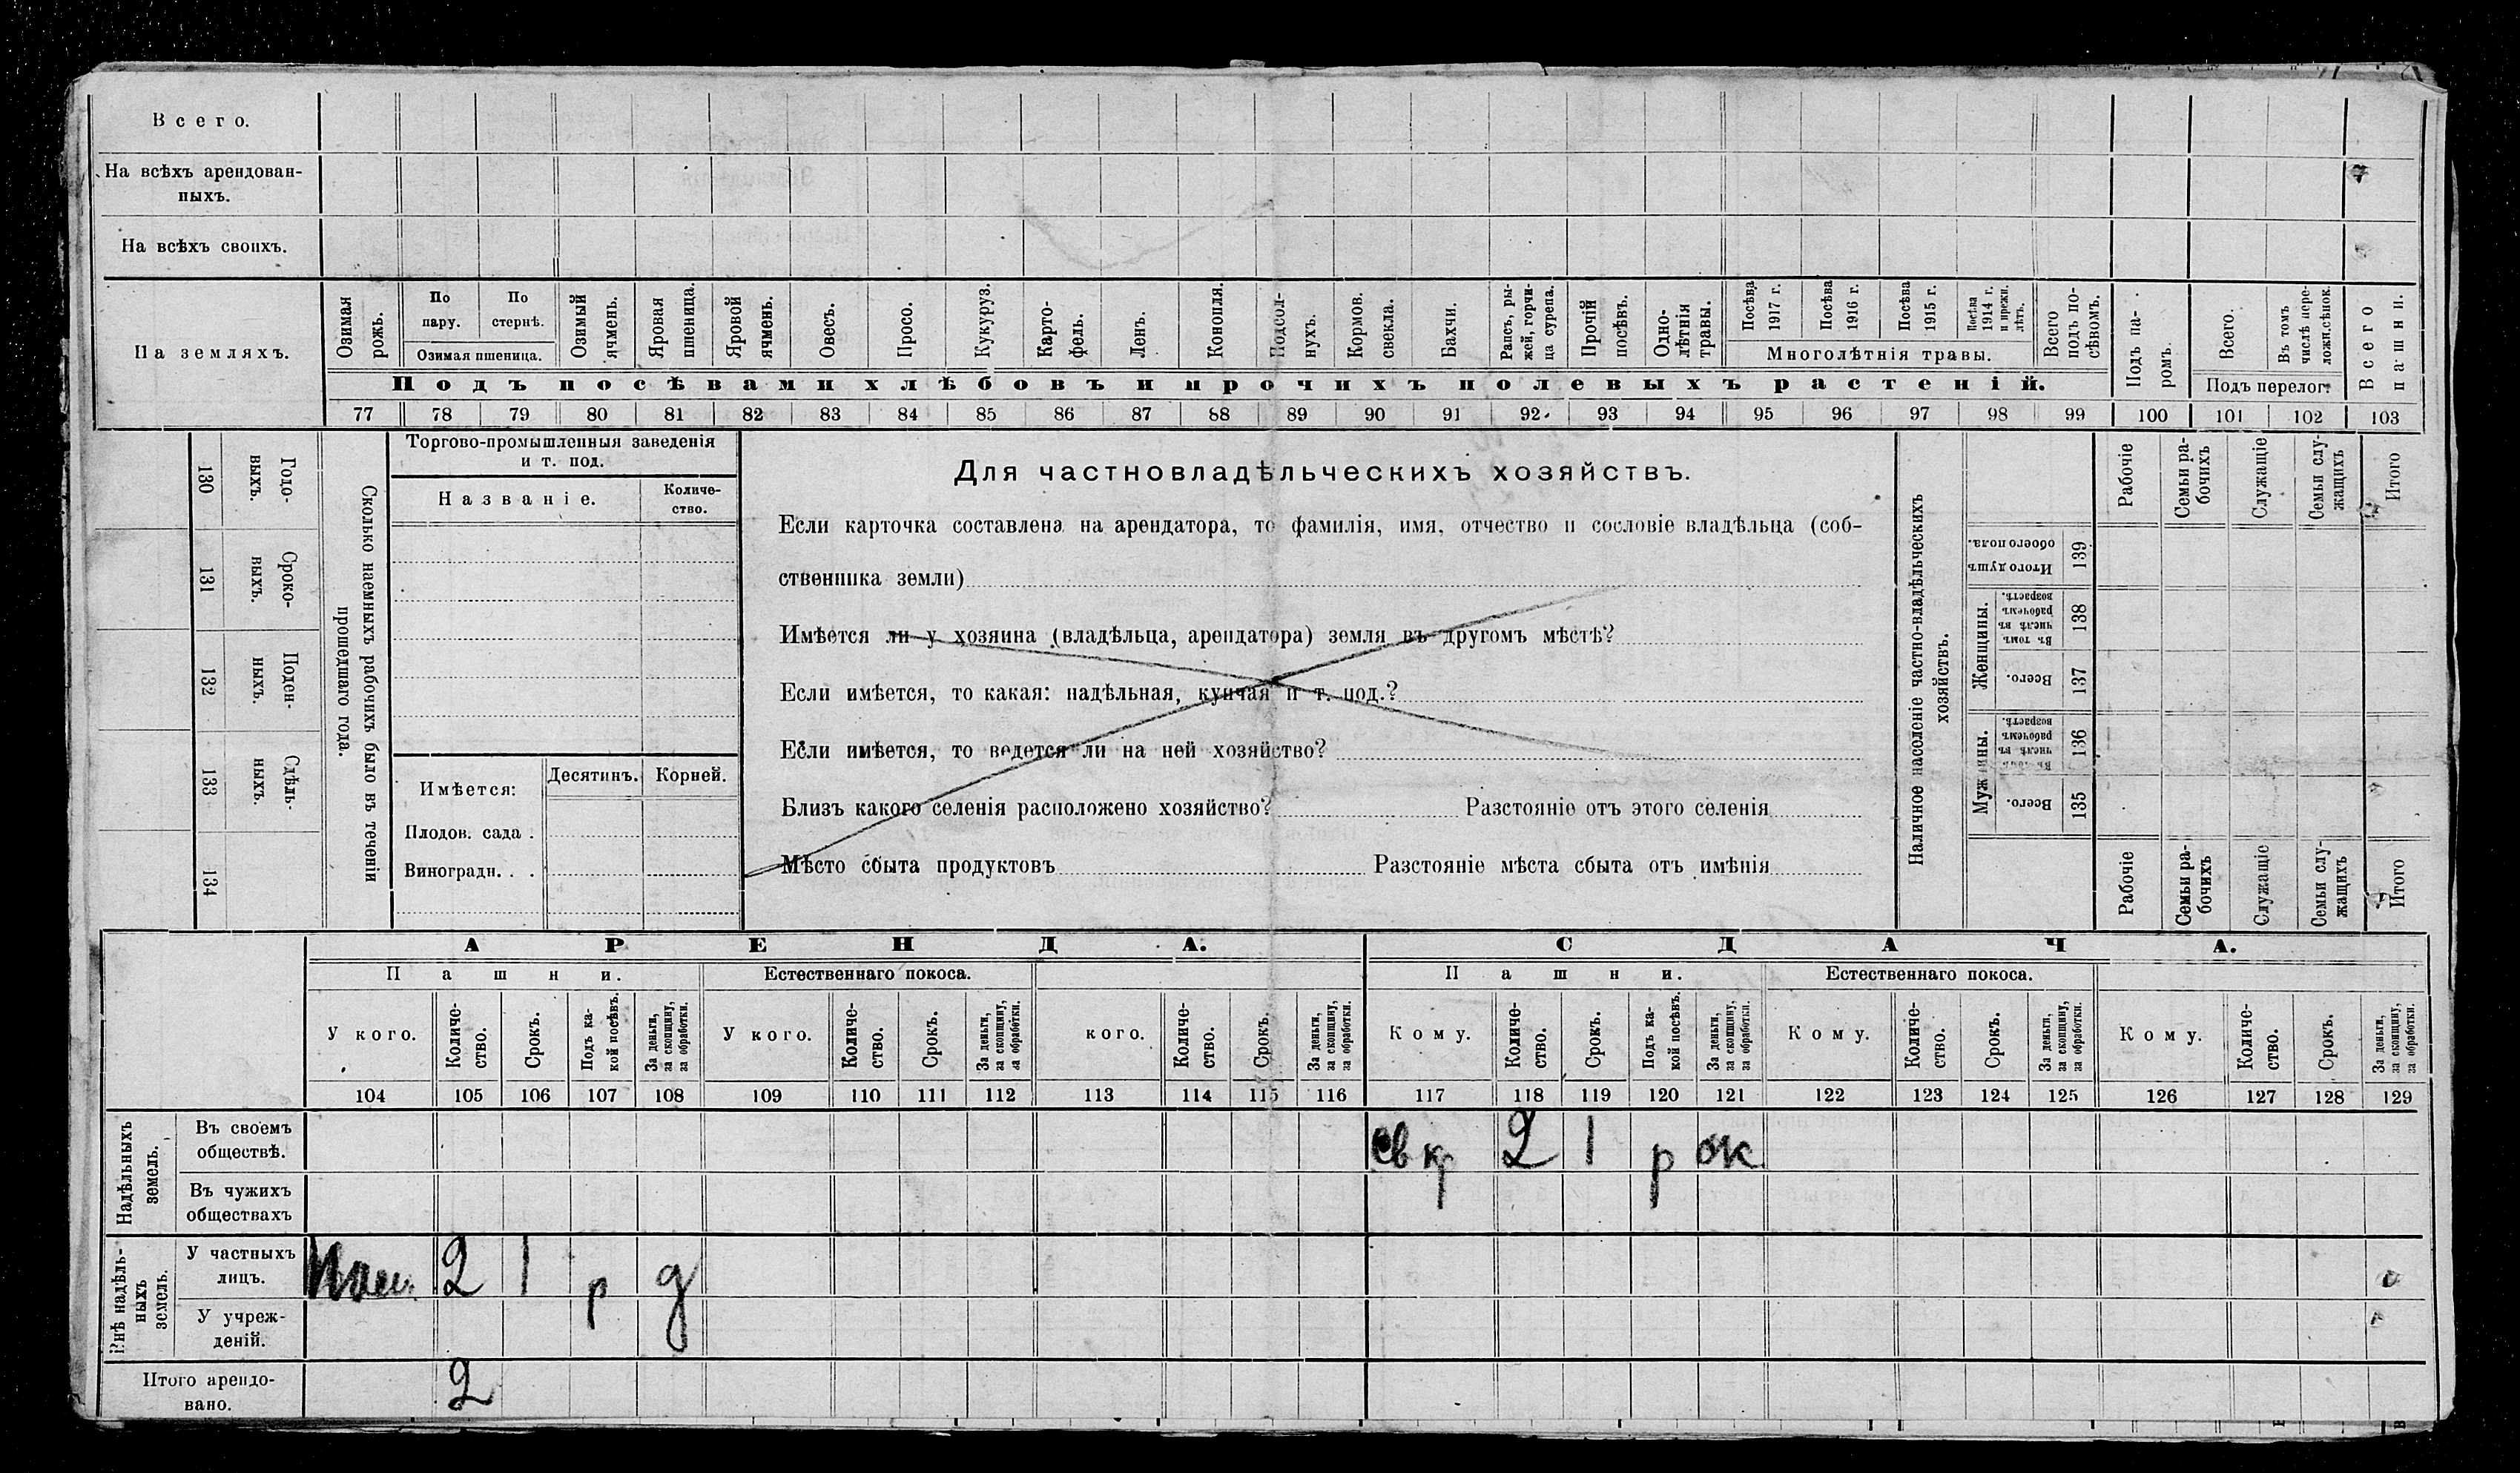 Всего.
На всѣхъ арендован-
ныхъ.
На всѣхъ своихъ.
На земляхъ.
Озимая рожь.
По пару.
По стернѣ.
Озимая пшеница.
Озимый ячмень.
Яровая пшеница.
Яровой ячмень.
Овесъ.
Просо.
Кукуруз.
Карто-
фель.
Ленъ.
Конопля.
Подсол-
нухъ.
Кормов. свекла.
Бахчи.
Рапсъ, ры-
жей, горчи-
ца сурепа.
Прочій посѣвъ.
Одно-
лѣтнія травы.
Посѣва 1917 г.
Посѣва 1916 г.
Посѣва 1915 г.
Посѣва 1914 г. и прежн. лѣтъ.
Многолѣтнія травы.
Всего подъ по-
сѣвомъ.
Подъ па-
ромъ.
Всего.
Въ томъ числѣ пере-
ложн. сѣнок.
Подъ перелог.
Всего пашни.
Подъ посѣвами хлѣбовъ и прочихъ полевыхъ растеній.
77 78 79 80 81 82 83 84 85 86 87 88 89 90 91 92 93 94 95 96 97 98 99 100 101 102 103
130 Годо-
выхъ.
131 Сроко-
выхъ.
132 Поден-
ныхъ.
133 Сдѣль-
ныхъ.
134
Сколько наемныхъ рабочихъ было въ теченіи
прошедшаго года.
Торгово-промышленныя заведенія
и т. под.
Названіе.
Количе-
ство.
Имѣется:
Десятинъ.
Корней.
Плодов. сада .
Виноградн. . .
Для частновладѣльческихъ хозяйствъ.
Если карточка составлена на арендатора, то фамилія, имя, отчество и сословіе владѣльца (соб-
ственника земли)
Имѣется ли у хозяина (владѣльца, арендатора) земля въ другомъ мѣстѣ?
Если имѣется, то какая: надѣльная, купчая и т. под.?
Если имѣется, то ведется ли на ней хозяйство?
Близъ какого селенія расположено хозяйство? Разстояніе отъ этого селенія
Мѣсто сбыта продуктовъ Разстояніе мѣста сбыта отъ имѣнія
Наличное населеніе частно-владѣльческихъ
хозяйствъ.
Рабочіе
Семьи ра-
бочихъ
Служащіе
Семьи слу-
жащихъ
Итого
Итого душъ обоего пола. 139
Женщины.
Въ томъ числѣ въ рабочемъ возрастѣ. 138
Всего. 137
Мужчины.
Въ томъ числѣ въ рабочемъ возрастѣ. 136
Всего. 135
Рабочіе
Семьи ра-
бочихъ
Служащіе
Семьи слу-
жащихъ
Итого
АРЕНДА. СДАЧА.
Пашни. Естественнаго покоса. Пашни. Естественнаго покоса.
У кого. Количе-
ство. Срокъ. Подъ ка-
кой посѣвъ. За деньги, за скопщину, за обработки.
У кого. Количе-
ство. Срокъ. За деньги, за скопщину, за обработки.
кого. Количе-
ство. Срокъ. За деньги, за скопщину, за обработки.
Кому. Количе-
ство. Срокъ. Подъ ка-
кой посѣвъ. За деньги, за скопщину, за обработки.
Кому. Количе-
ство. Срокъ. За деньги, за скопщину, за обработки.
Кому. Количе-
ство. Срокъ. За деньги, за скопщину, за обработки.
104 105 106 107 108 109 110 111 112 113 114 115 116 117 118 119 120 121 122 123 124 125 126 127 128 129
Надѣльныхъ земель.
Въ своемъ
обществѣ.
свк 2 1 р ок
Въ чужихъ
обществахъ
Внѣ надѣль-
ныхъ земель.
У частныхъ
лицъ.
2 1 р д
У учреж-
деній.
Итого арендо-
вано.
2